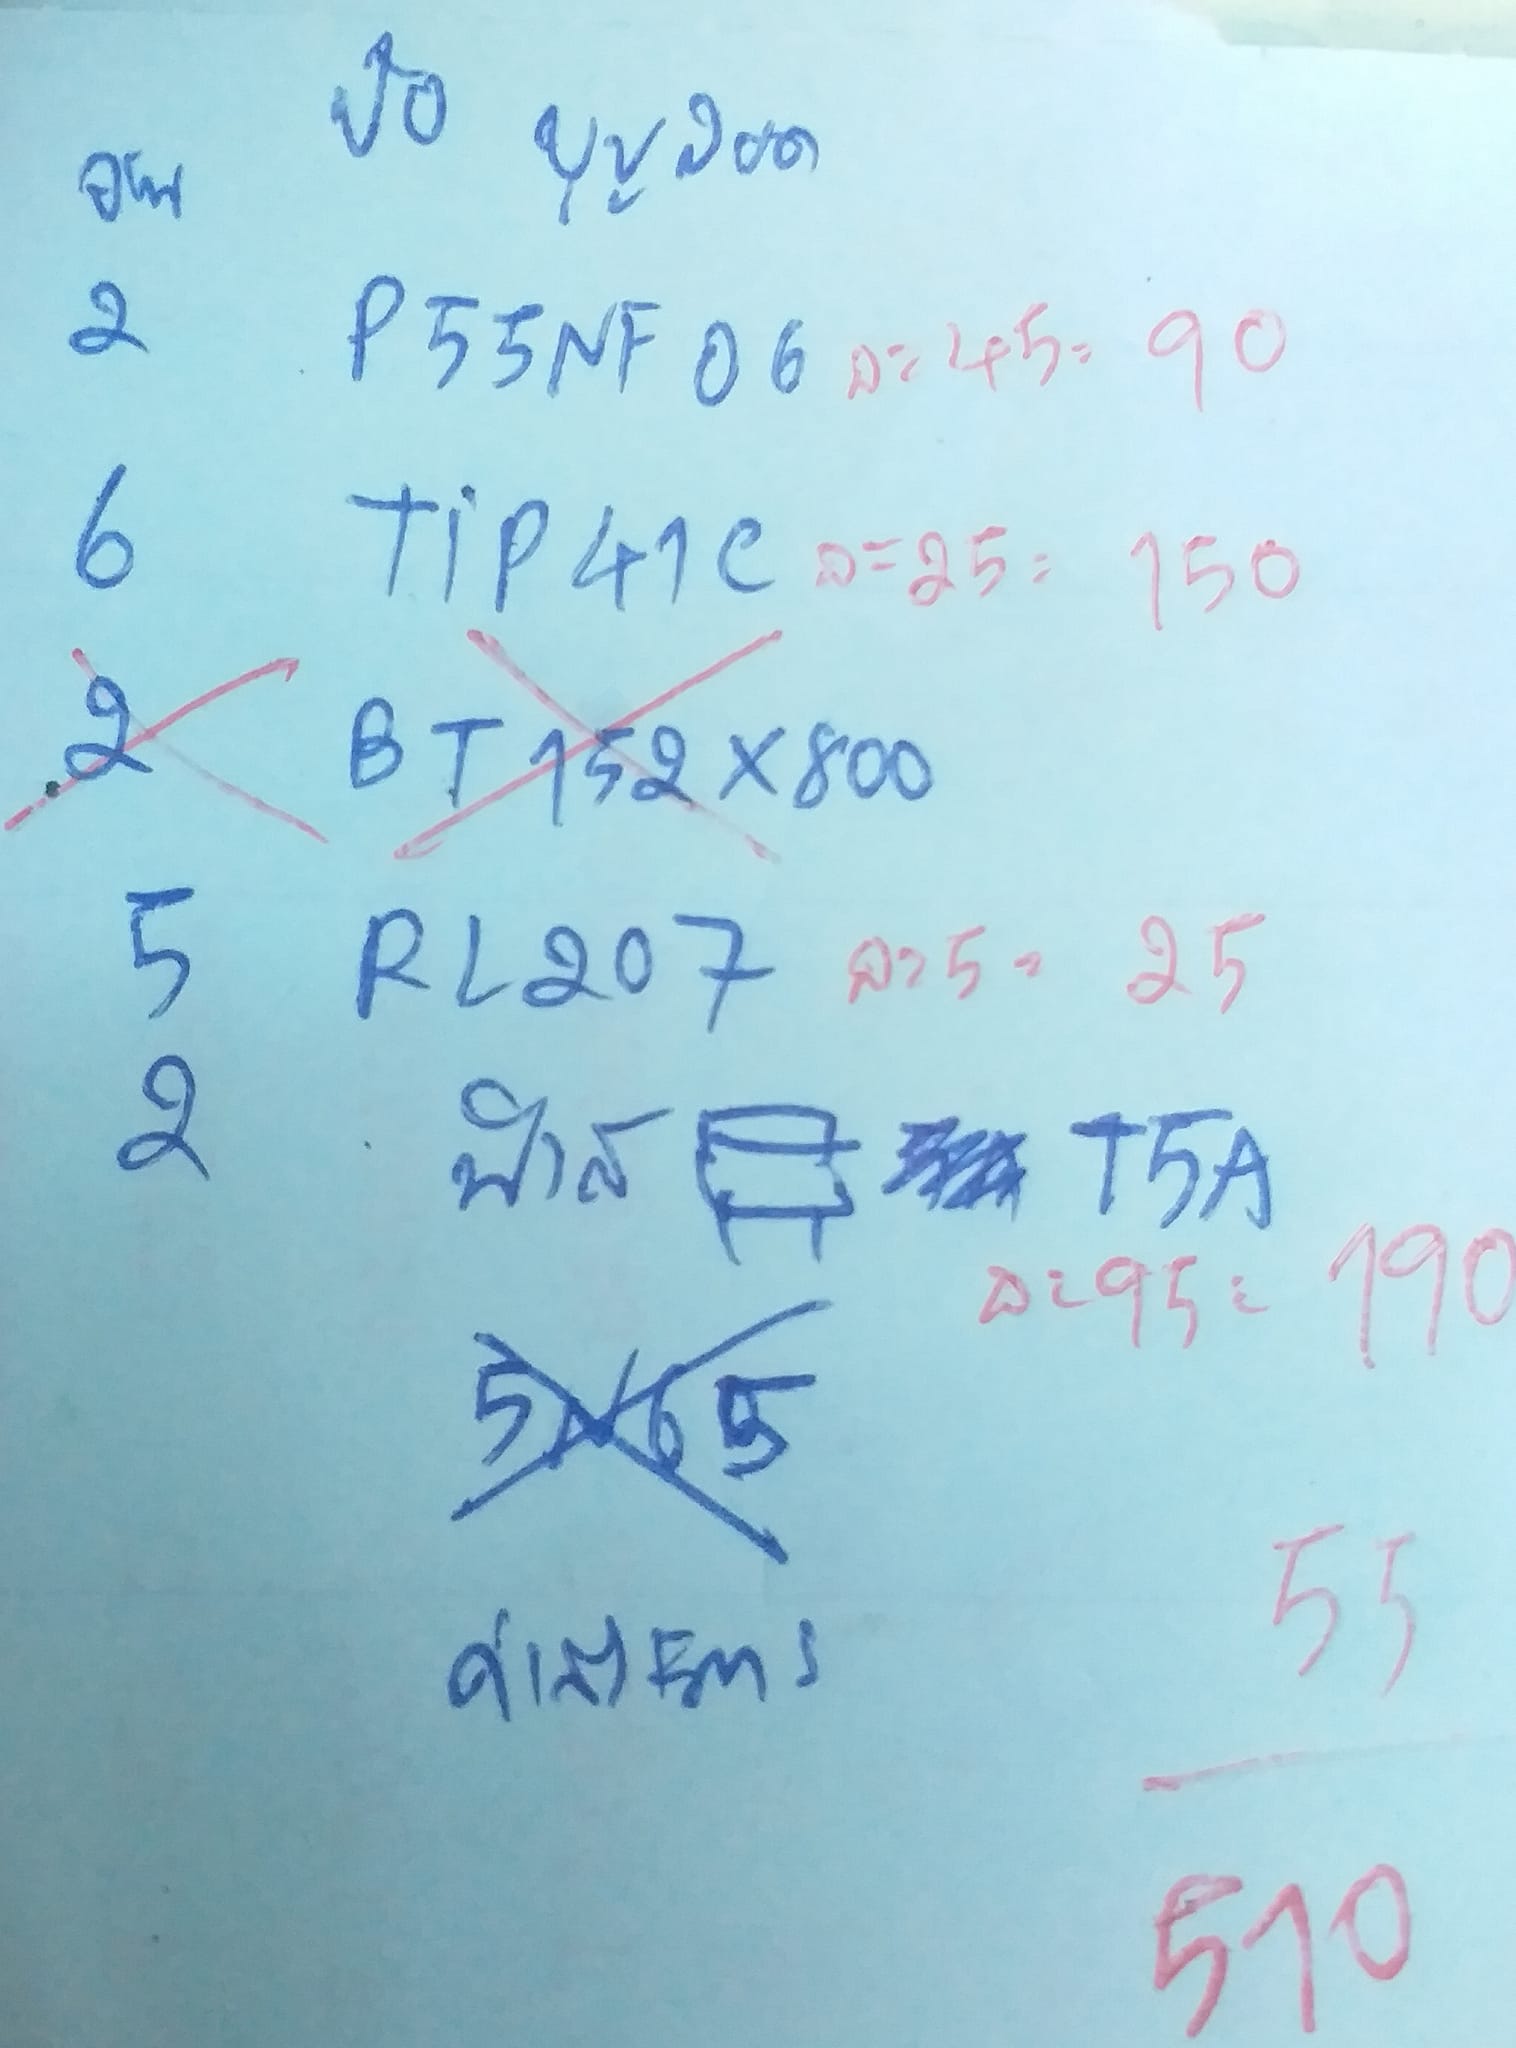 2 P55NF06 ละ 45= 90
6 TiP41C ละ 25= 150
2 BT152X800
5 RL207 ละ 5= 25
2 ฟิวส์ T5A
ละ 95= 190
ค่าส่ง EMS
55
510